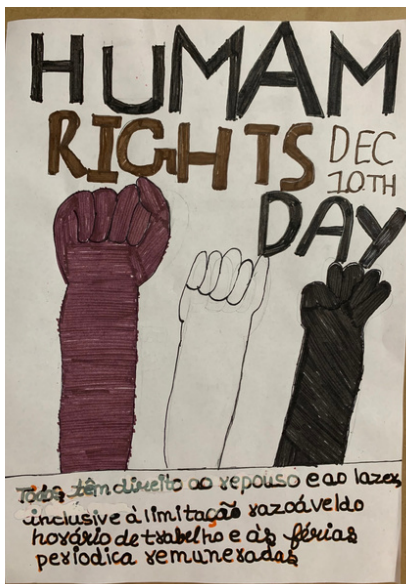 HUMAM
RIGHTS
DEC
10TH
DAY
Todos têm direito ao repouso e ao lazer,
inclusive à limitação razoável do
horário de trabelho e às férias
periodica remuneradas